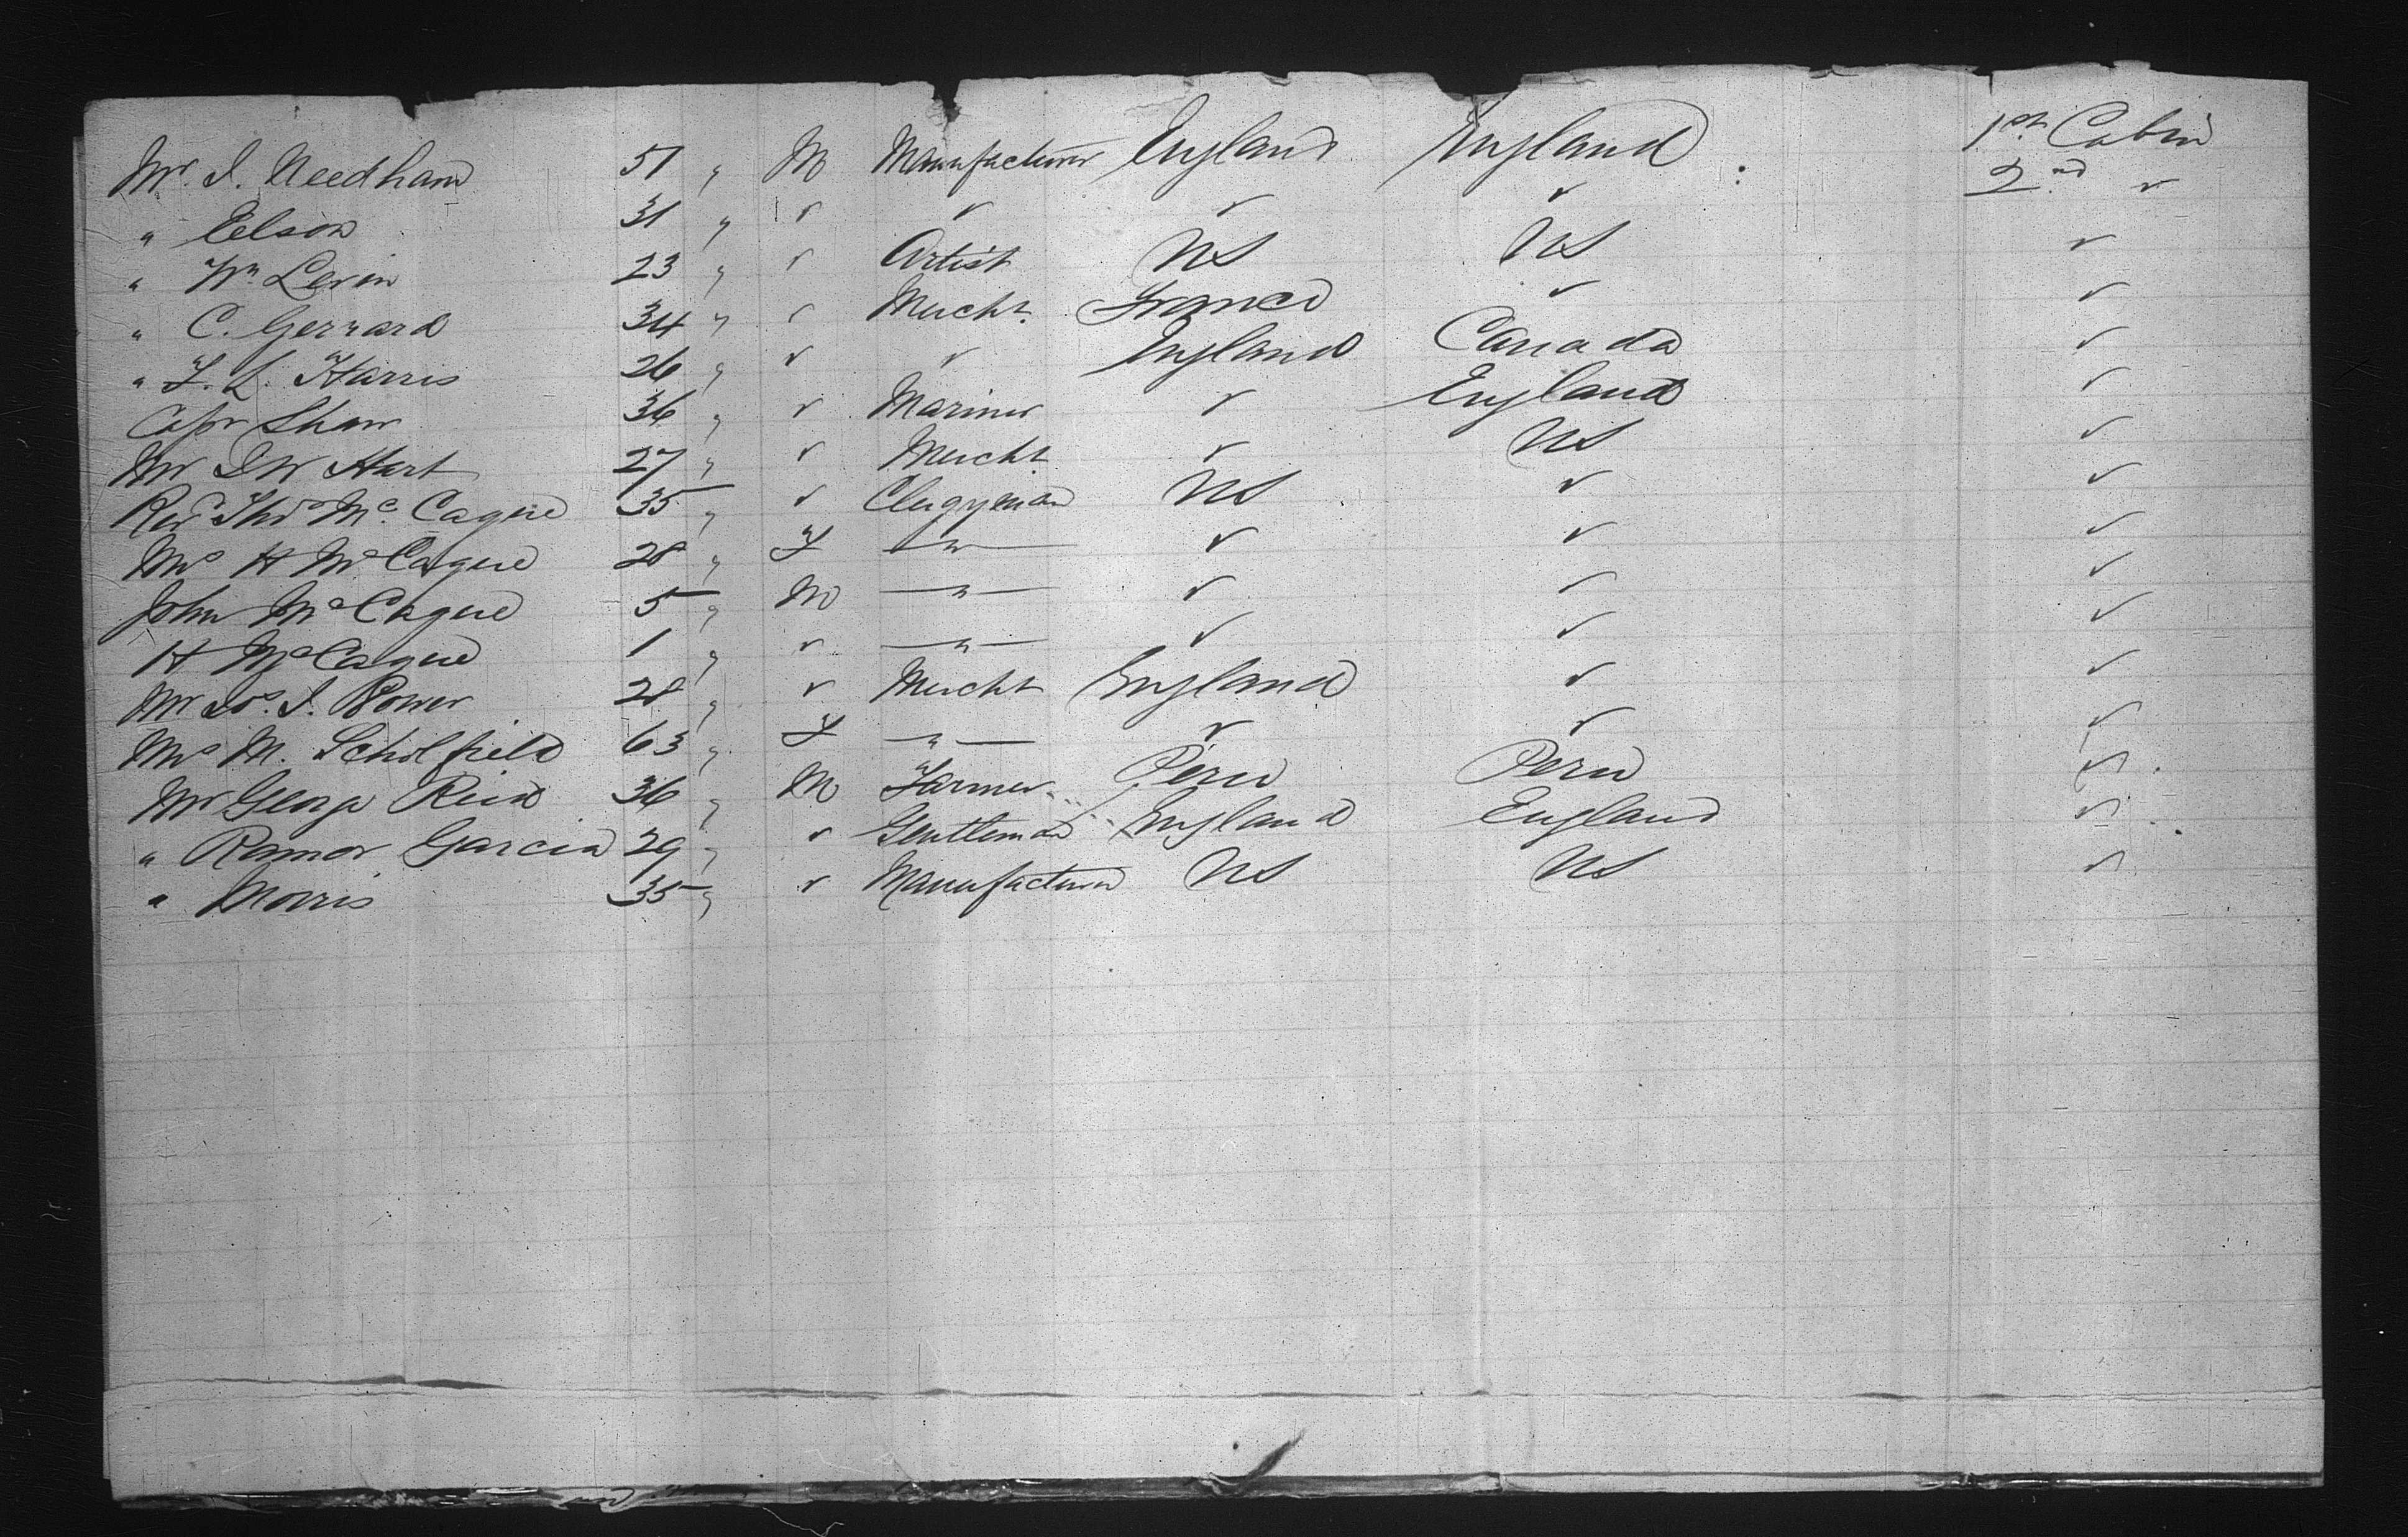 Mr. I. Needham 51 " M Manufacturer England England 1st Cabin
" Elson 31 " " " " " 2nd "
" Wm Levin 23 " " Artist US US "
" C. Gerrard 34 " " Mercht. France " "
" F. L. Harris 26 " " " England Canada "
Capt Shaw 36 " " Mariner " England "
Mr I W Hart 27 " " Mercht. " US "
Revd Thos McCague 35 " " Clergyman US " "
Mrs H McCague 28 " F —"— " " "
John McCague 5 " M —"— " " "
H McCague 1 " " —"— " " "
Mr I. Power 28 " " Mercht England " "
Mrs M. Scholfield 63 " F —"— " " "
Mr George Reid 36 " M Farmer Peru Peru "
" Ramor Garcia 29 " " Gentleman England England "
" Morris 35 " " Manufacturer US US "